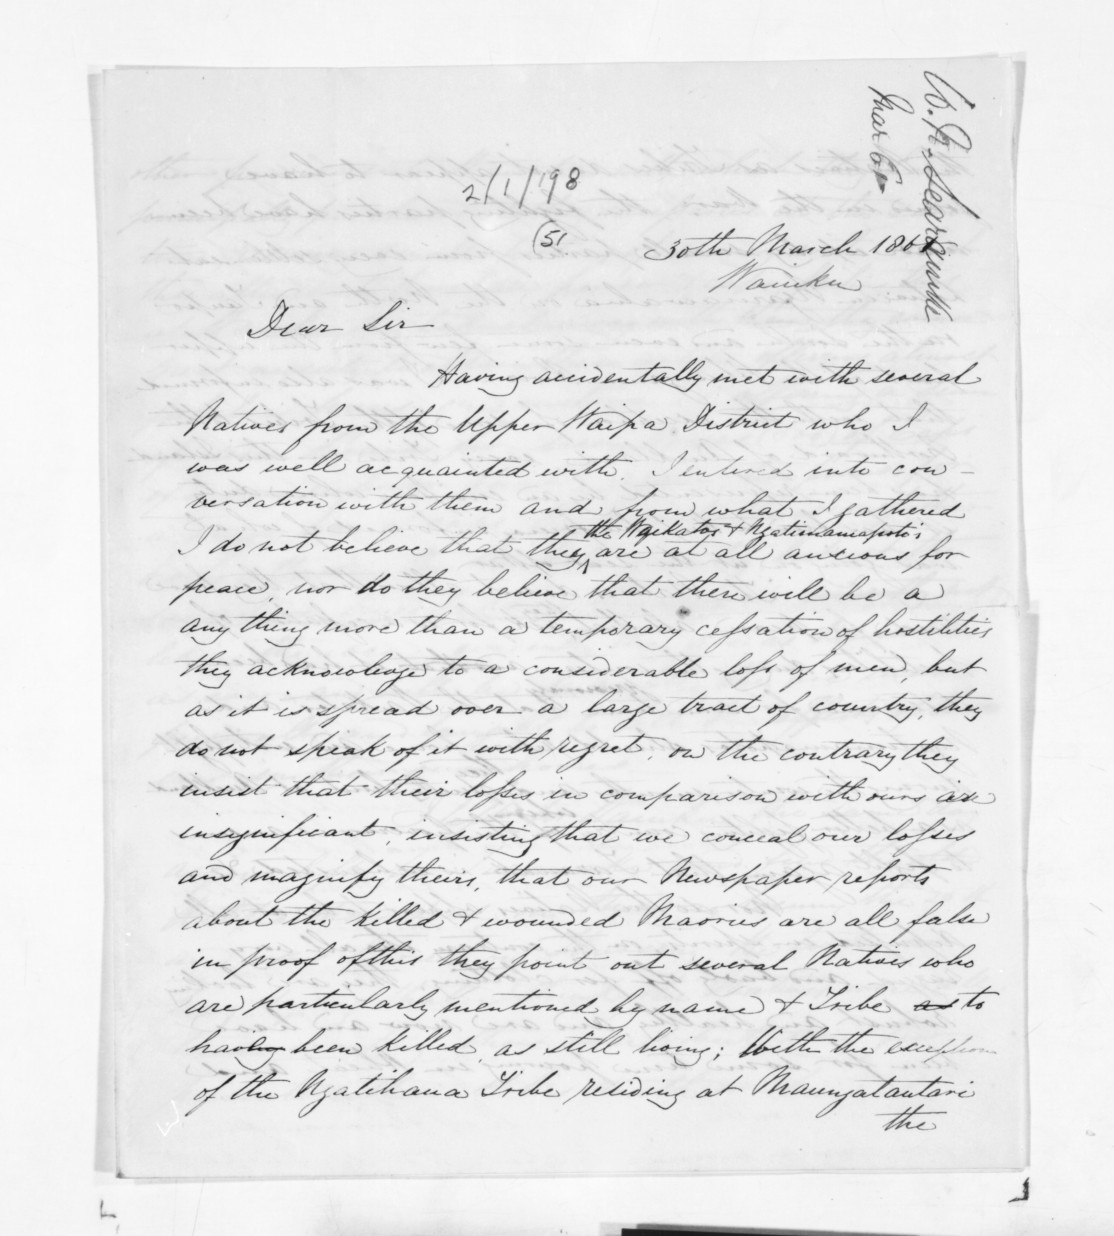 W. N. Searancke
Mar 61
2/1/198
(51
30th March 1861
Waiuku
Dear Sir
Having accidentally met with several
Natives from the Upper Waipa District who I
was well acquainted with. I entered into con-
versation with them and from what I gathered
I do not believe that they the Waikatos & Ngatimaniapoto's are at all anxious for
peace, nor do they believe that there will be a
any thing more than a temporary cessation of hostilities
they acknowledge to a considerable loss of men, but
as it is spread over a large tract of country, they
do not speak of it with regret, on the contrary they
insist that their losses in comparison with ours are
insignificant, insisting that we conceal our losses
and magnify theirs, that our Newspaper reports
about the killed & wounded Maories are all false
in proof of this they point out several Natives who
are particularly mentioned by name & Tribe as to
having been killed, as still living; With the exception
of the Ngatihaua Tribe residing at Maungatautari
the